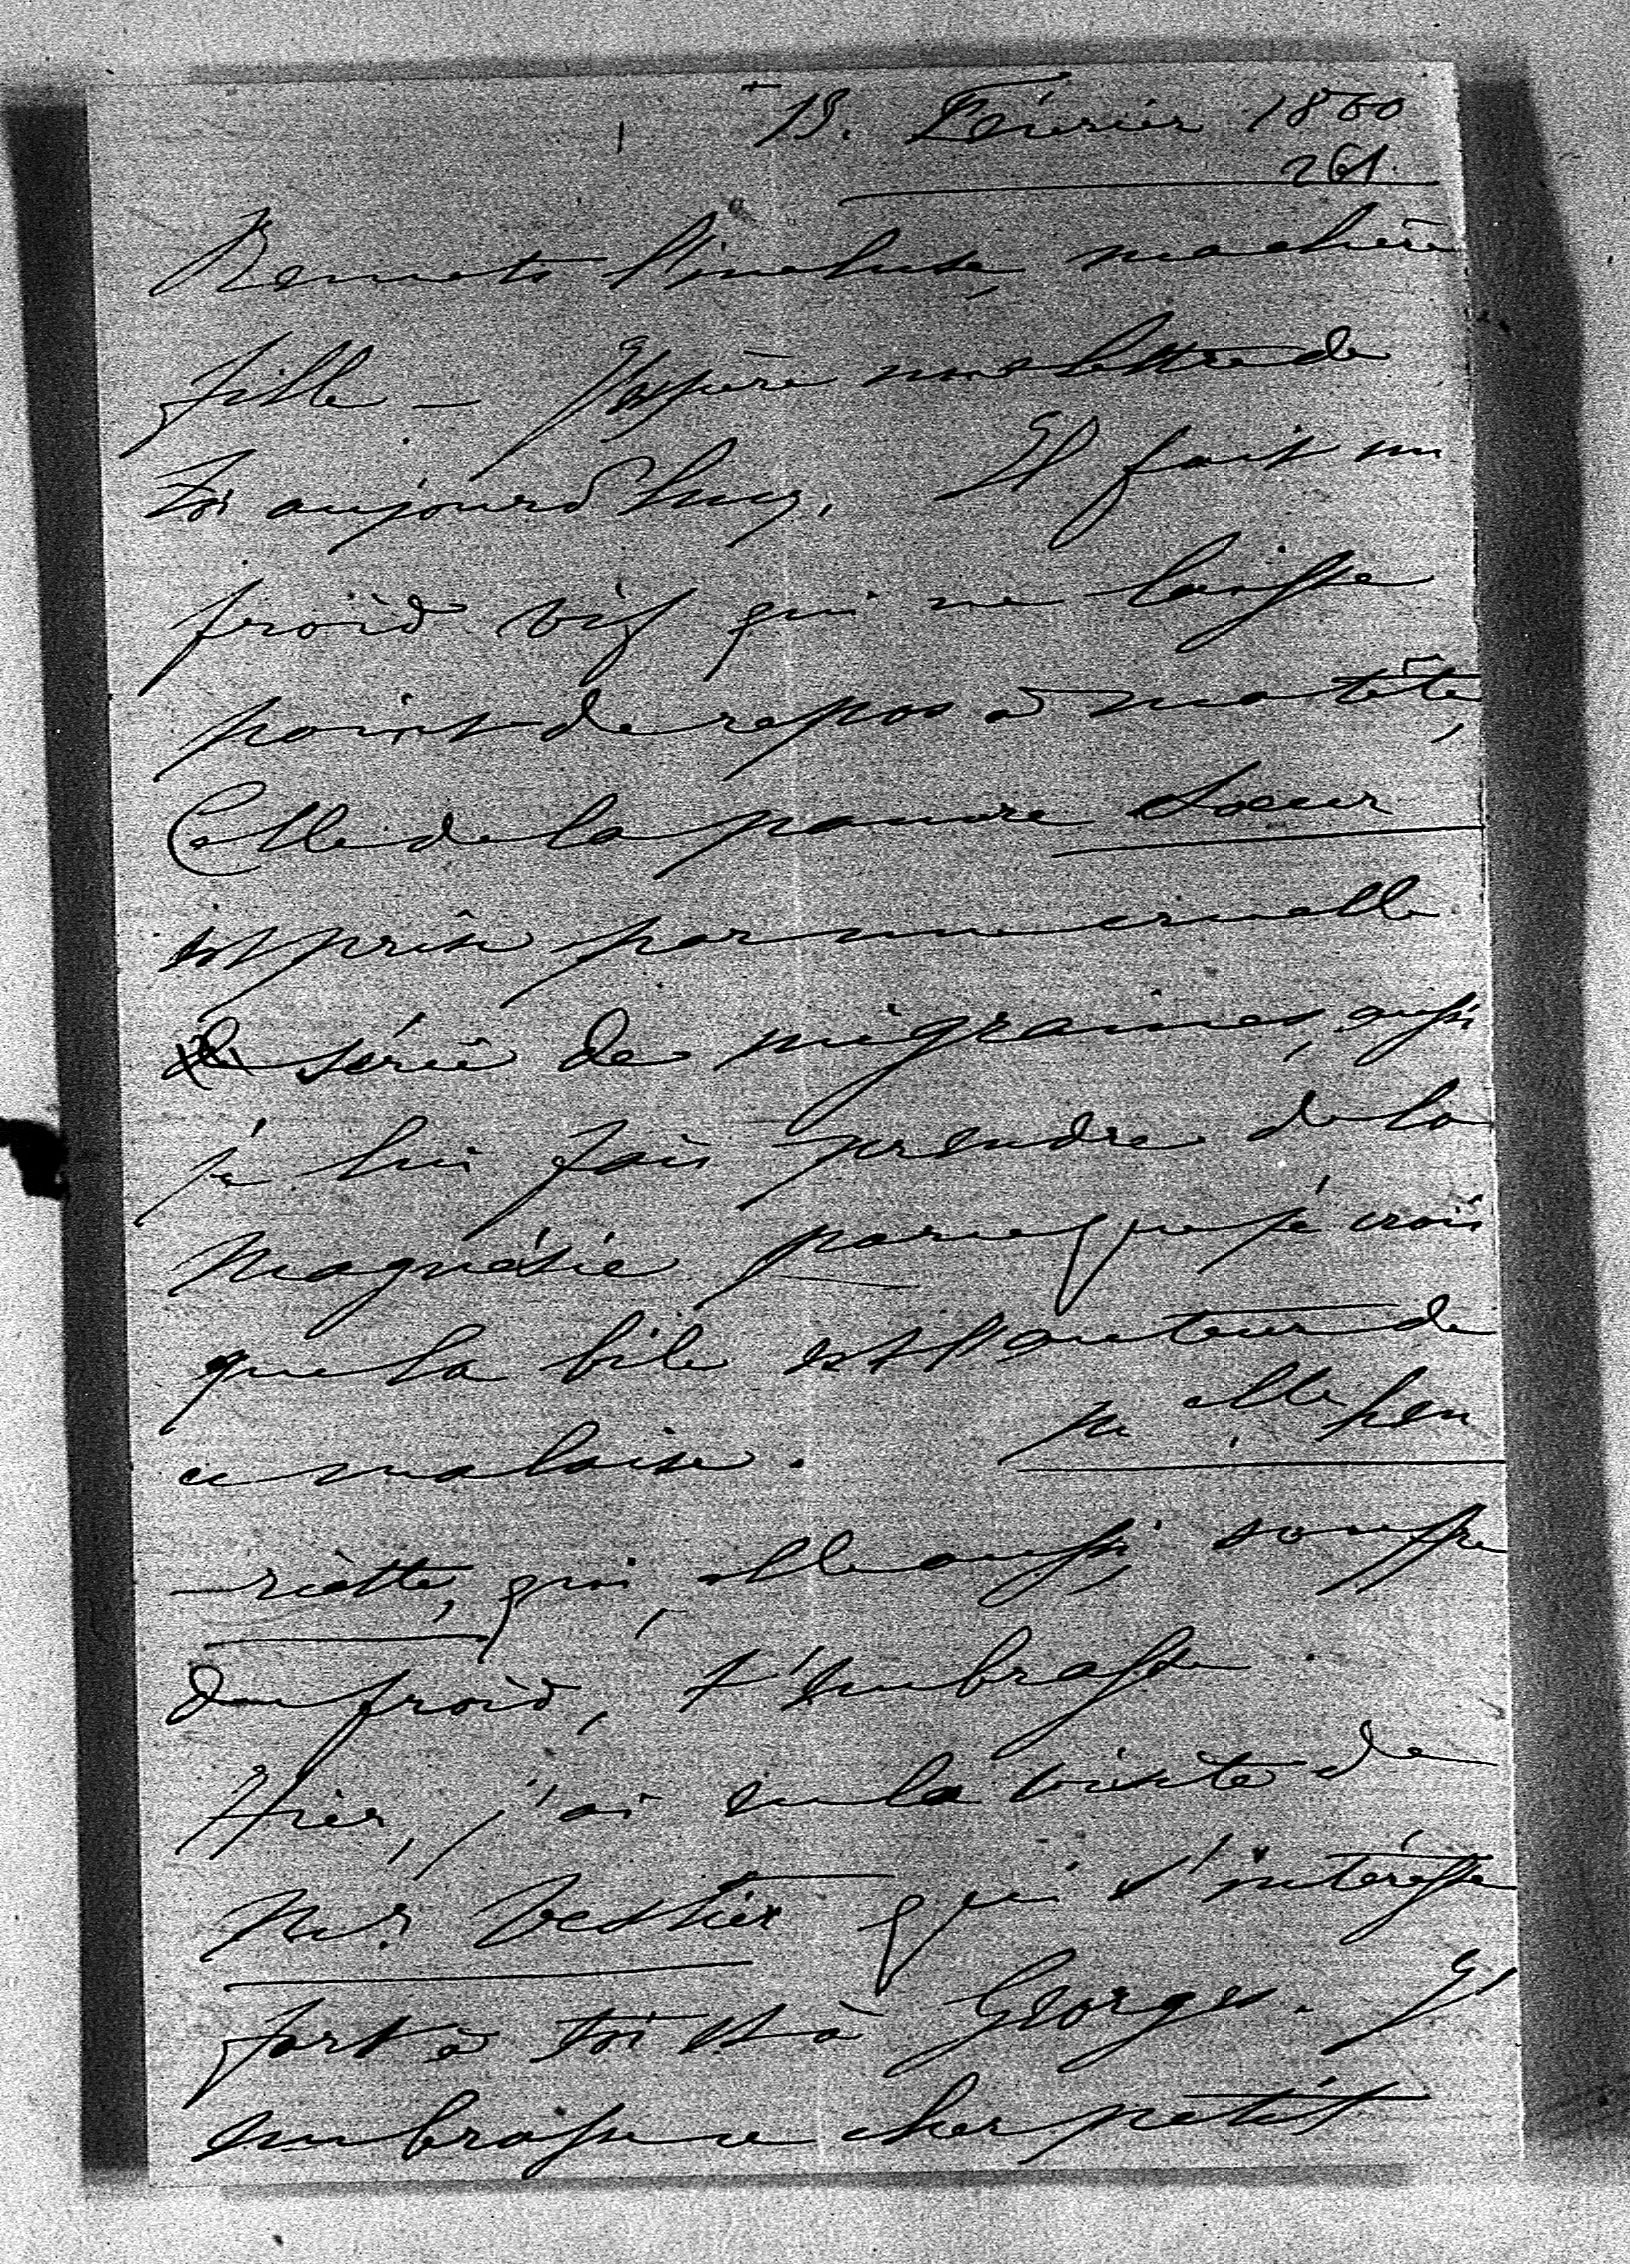 13. Février 1860
261.
Remets l'incluse, ma chère
fille — J'espère une lettre de
toi aujourd'huy. Il fait un
froid vif qui ne laisse
point de repos à ma tête,
Celle de la pauvre Soeur
est prise par une cruelle
série de migraines, aussi
je lui fais prendre de la
Magnésie parceque je crois
que la bile est l'auteur de
ce malaise. Melle Hen
-riette, qui, elle aussi, souffre
du froid, t'embrasse.
Hier, j'ai eu la visite de
Mr. Vestier qui s'intéresse
fort à toi et à Georges. J'
embrasse ce cher petit